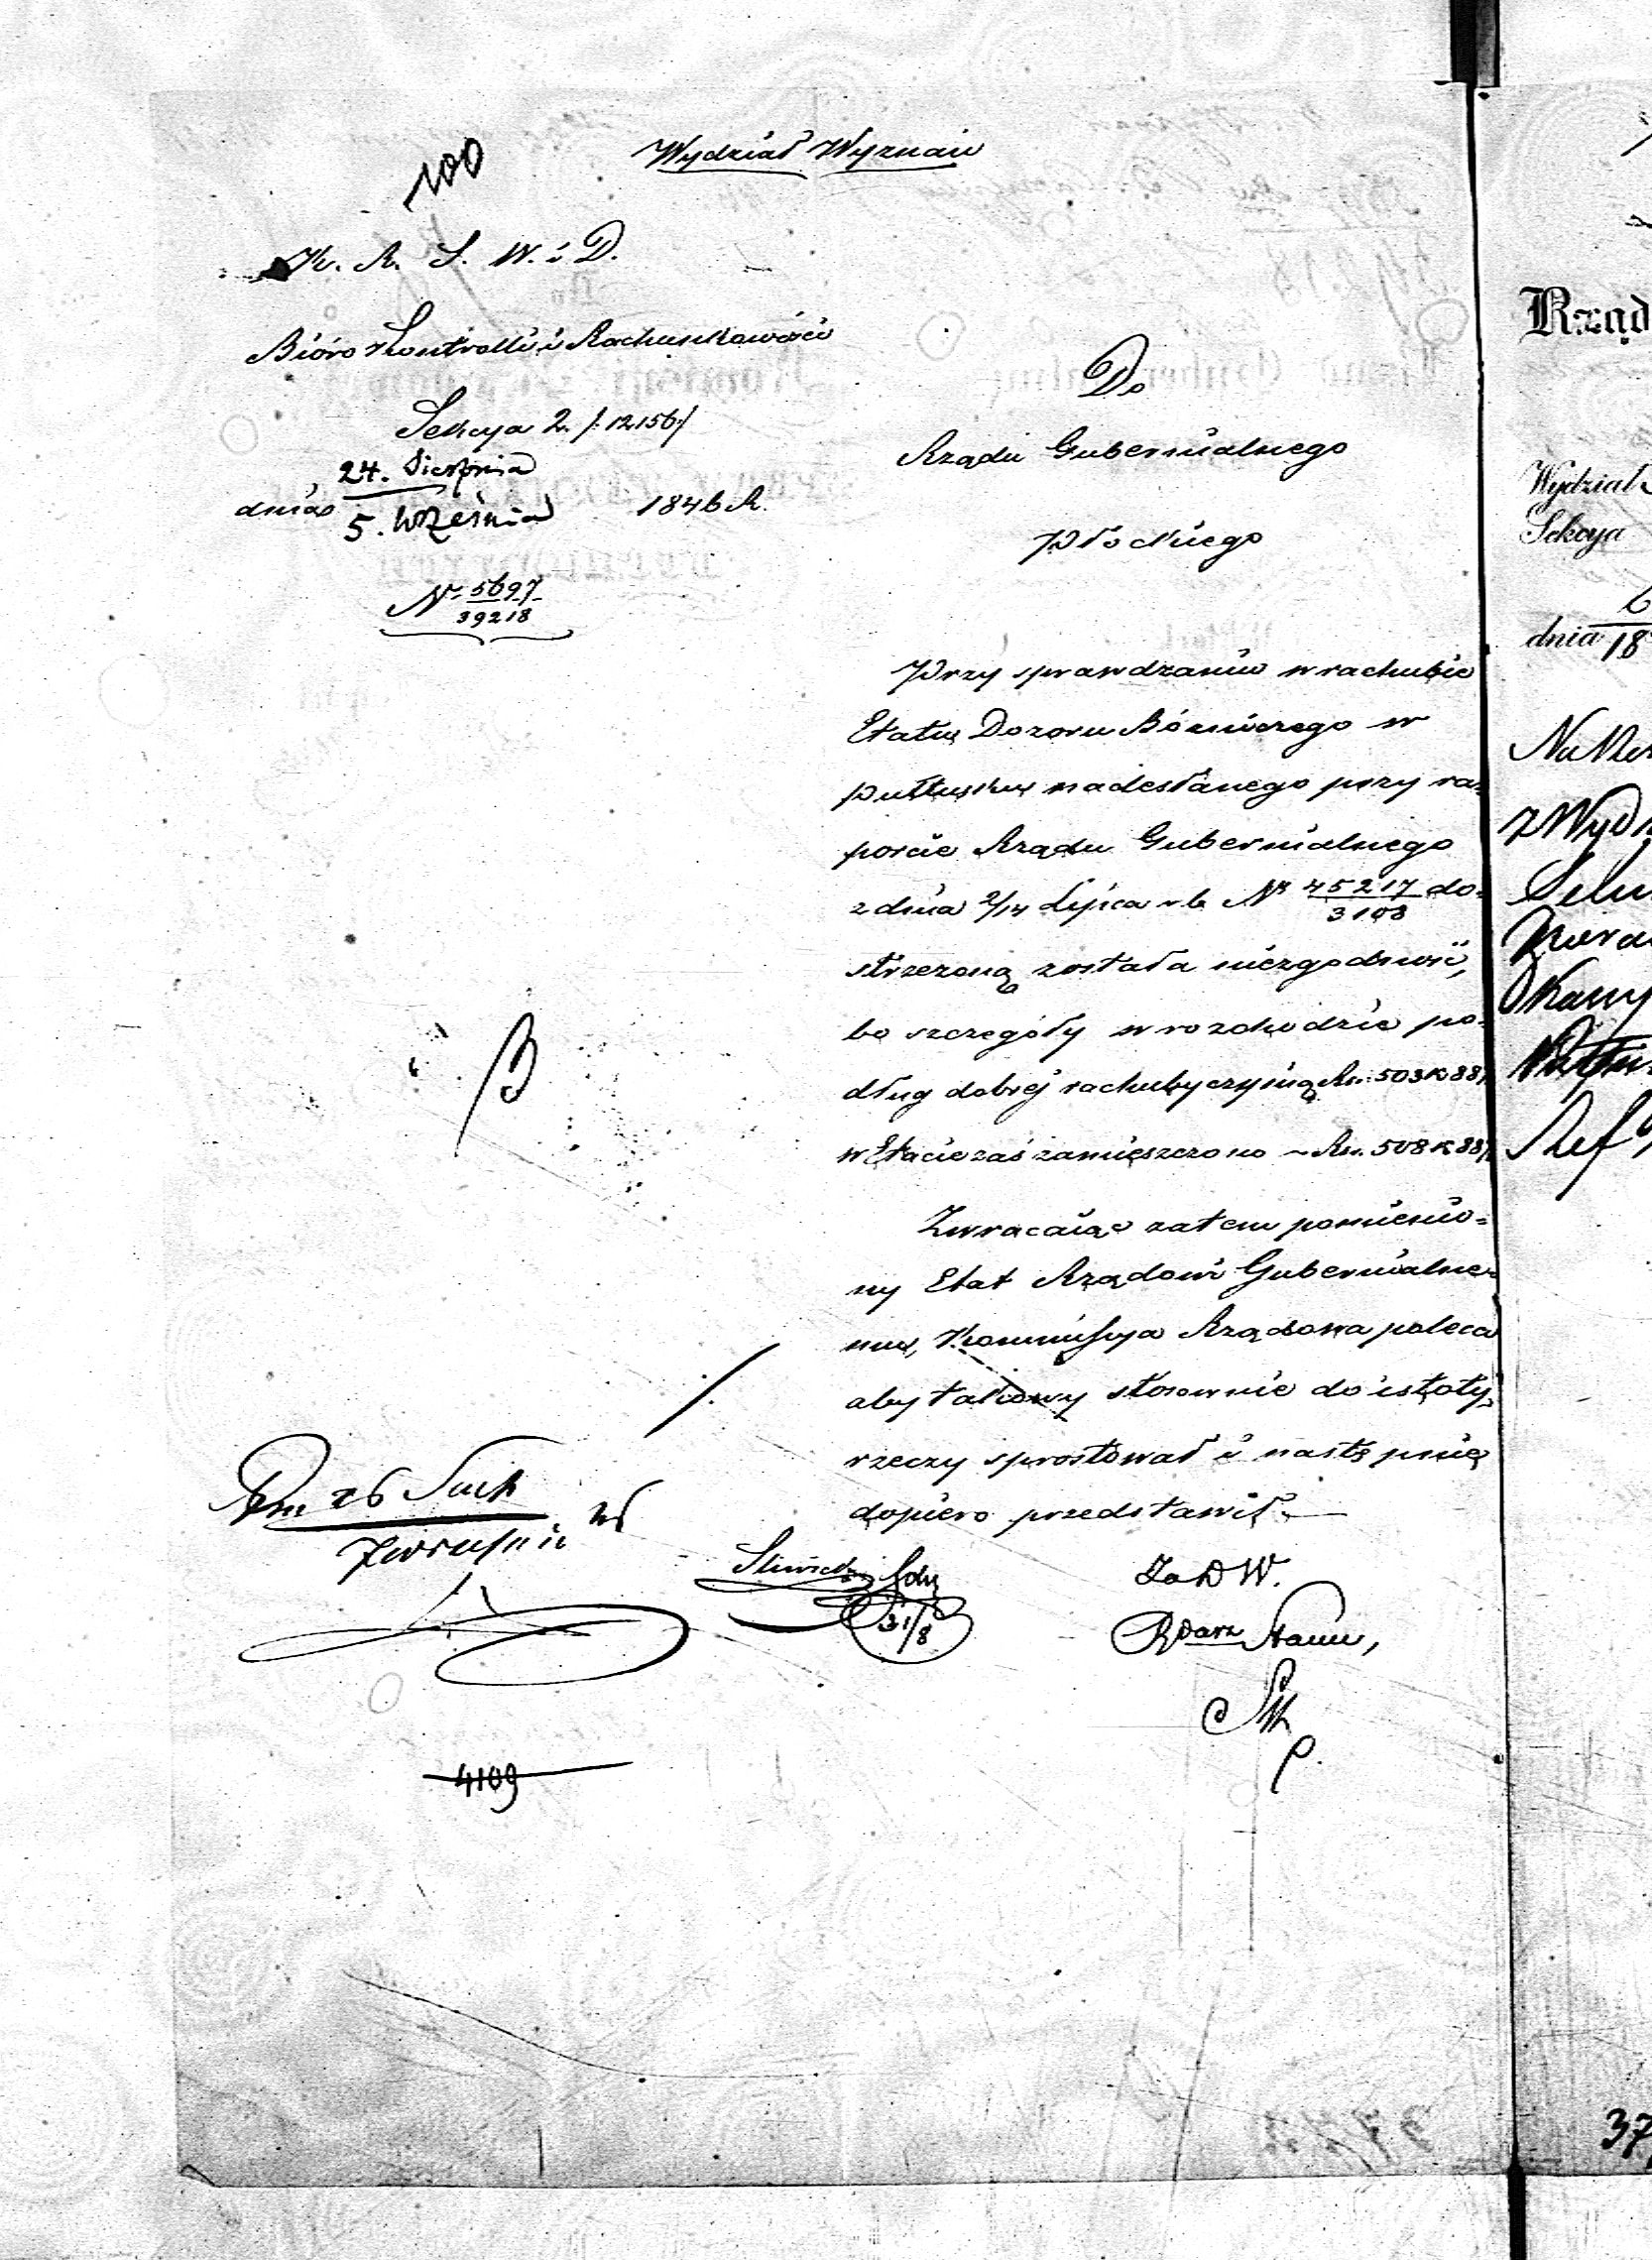 100
Wydział Wyznań
K. R. S. W. i D.
Bióro Kontrolli i Rachunkowości
Sekcya 2. /:12156:/
dnia 24. Sierpnia
5. Września 1846 R.
N. 5697
39218
Do
Rządu Gubernialnego
Płockiego
Przy sprawdzaniu w rachubie
Etatu Dozoru Bóżniczego w
Pułtusku nadesłanego przy ra=
porcie Rządu Gubernialnego
z dnia 2/14 Lipca r. b. Nr 45217 do=
3108
strzeżoną została niezgodność,
bo szczegóły w rozchodzie po=
dług dobrej rachuby czynią Rs. 503 K 88½
w Etacie zaś zamieszczono ~ Rs. 508 K 88½
Zwracaiąc zatem pomienio=
ny Etat Rządowi Gubernialne=
mu, Kommissya Rządowa poleca
aby takowy stosownie do istoty
rzeczy sprostował i następnie
dopiero przedstawił.
Za D W.
31/8
4109
Rząd
Wydział
Sekcya
dnia 18
37